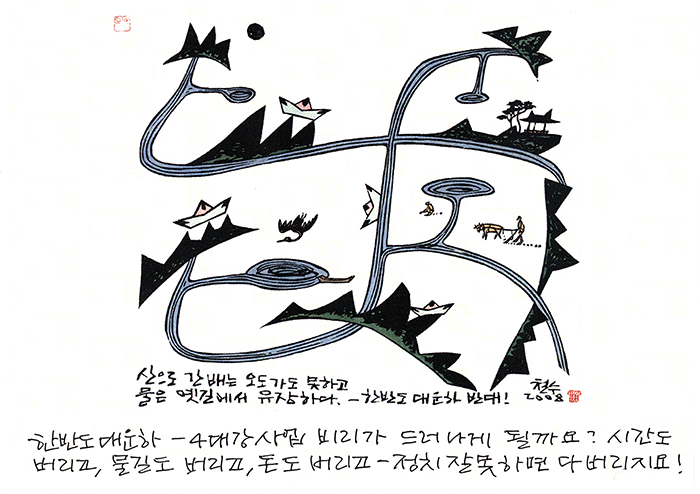 산으로 간 배는 오도가도 못하고
물은 옛길에서 유장하다. - 한반도 대운하 반대!
철수
2008
한반도대운하 - 4대강사업 비리가 드러나게 될까요? 시간도
버리고, 물길도 버리고, 돈도 버리고 - 정치 잘못하면 다 버리지요!